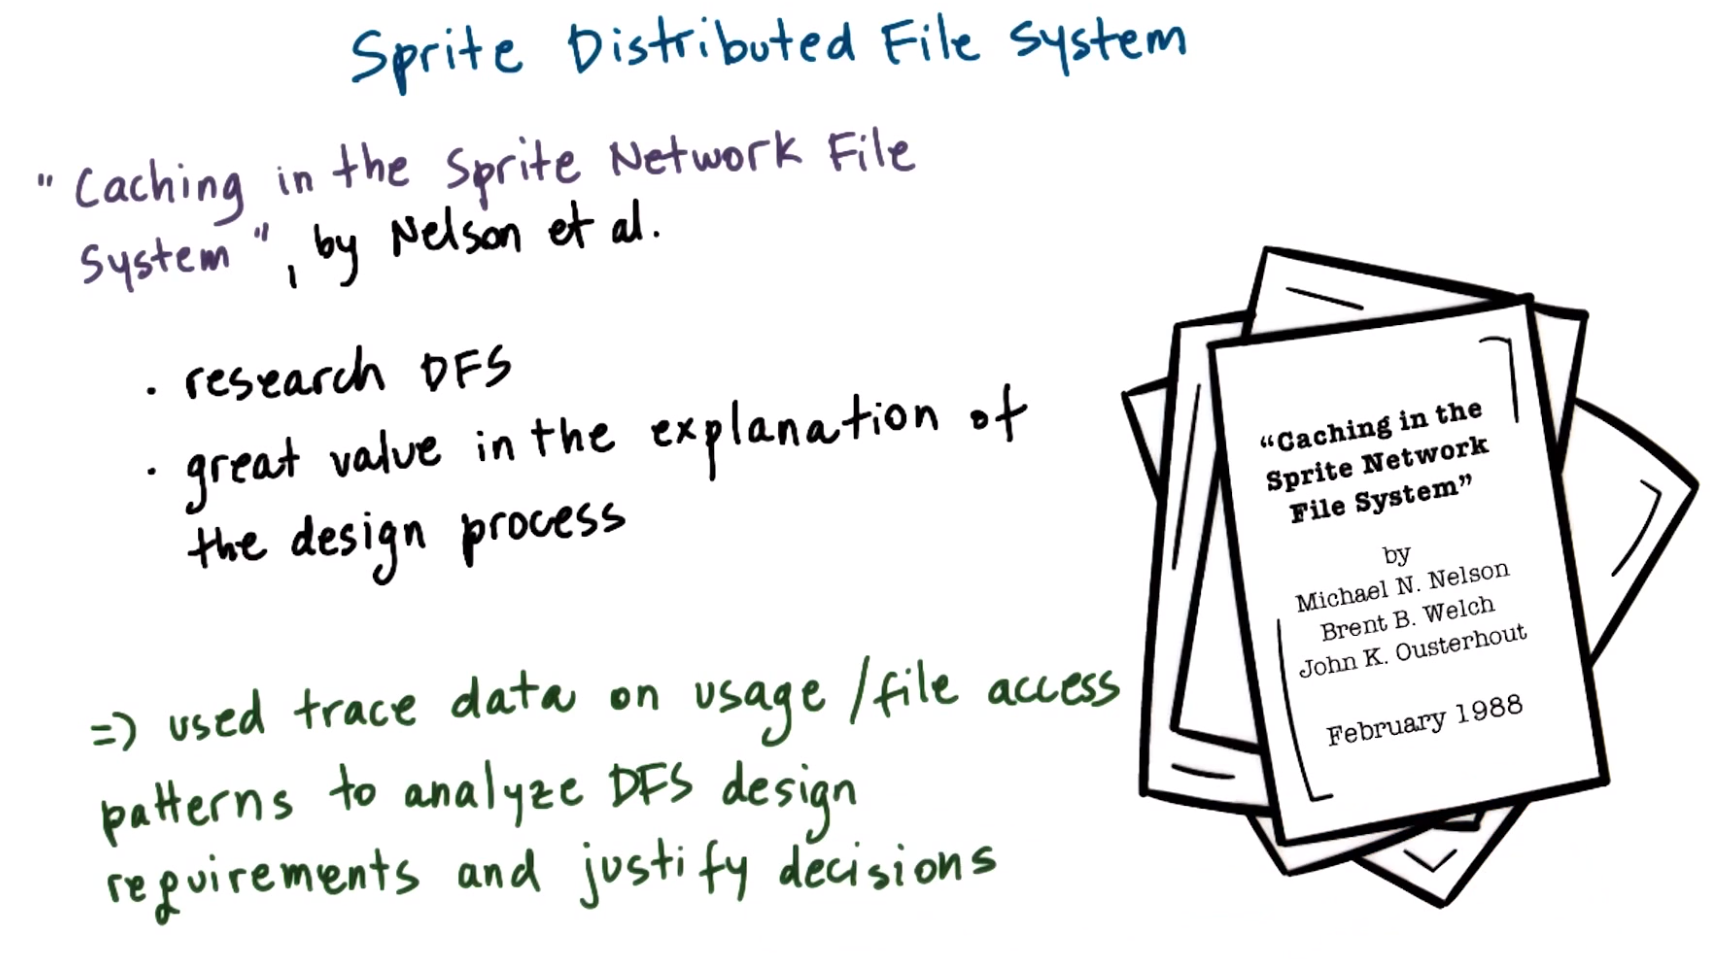 Sprite Distributed File System
"Caching in the Sprite Network File
System", by Nelson et al.
· research DFS
· great value in the explanation of
the design process
=> used trace data on usage/file access
patterns to analyze DFS design
requirements and justify decisions
“Caching in the
Sprite Network
File System”
by
Michael N. Nelson
Brent B. Welch
John K. Ousterhout
February 1988